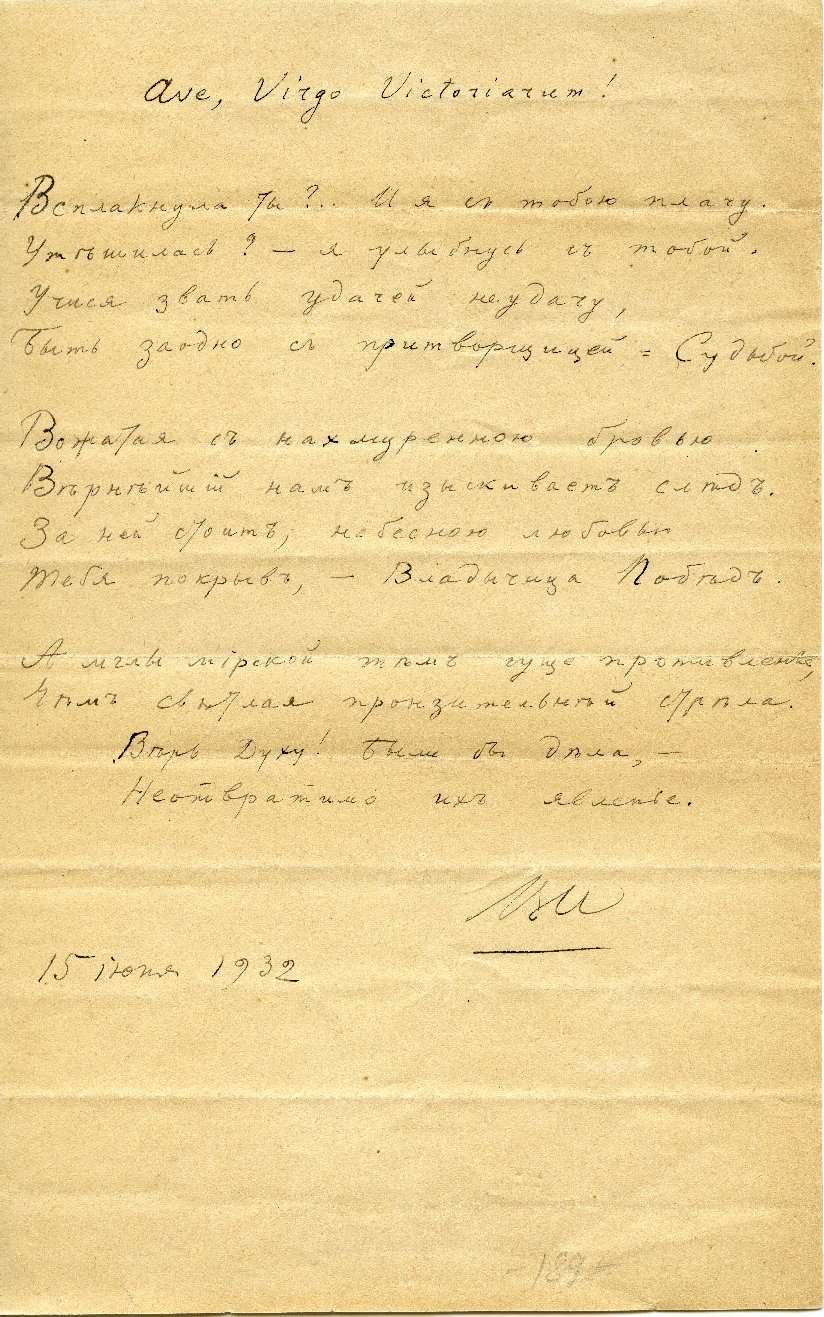 Ave, Virgo Victoriarum!
Всплакнула ты?.. И я съ тобою плачу.
Утѣшилась? — я улыбнусь съ тобой.
Учися звать удачей неудачу,
Быть заодно съ притворщицей = Судьбой.
Вожатая съ нахмуренною бровью
Вѣрнѣйшій намъ изыскиваетъ слѣдъ.
За ней стоитъ, небесною любовью
Тебя покрывъ, — Владычица Побѣдъ.
А мглы мірской тѣмъ гуще противленье,
Чѣмъ свѣтлая пронзительнѣй стрѣла.
Вѣрь Духу! Были бъ дѣла, —
Неотвратимо ихъ явленіе.
ВИ
15 іюня 1932
-189-